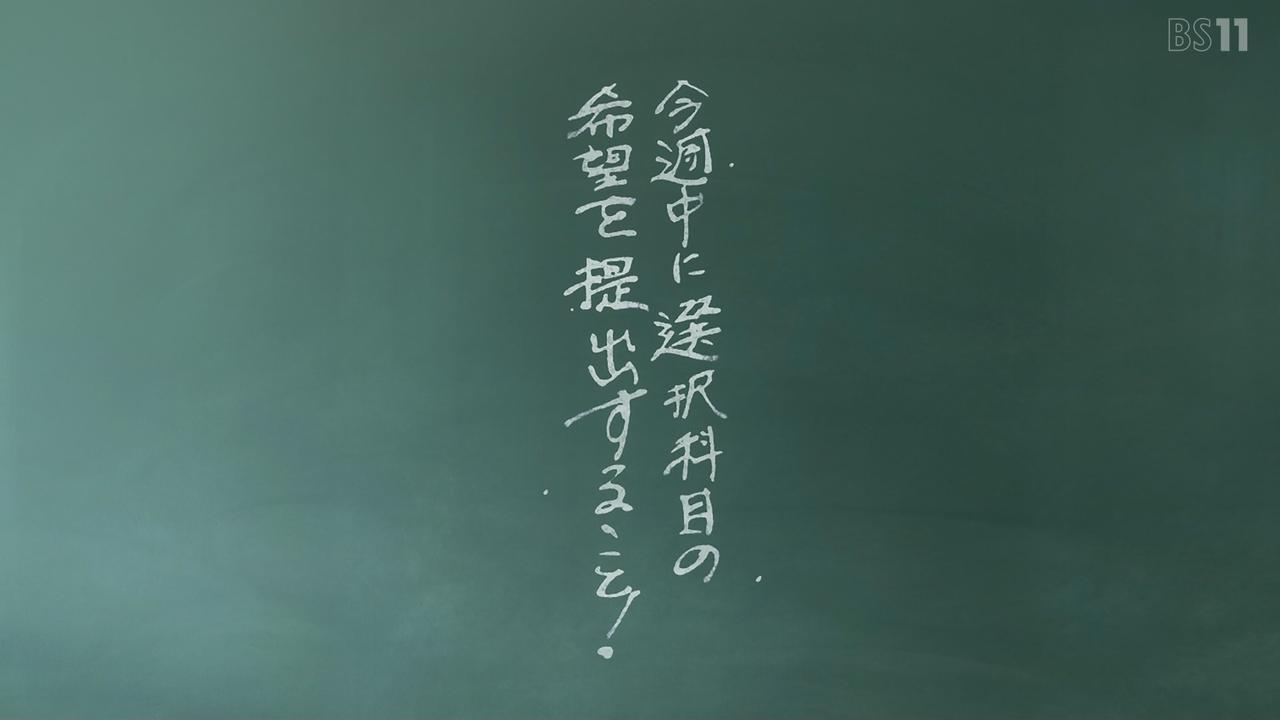 BS11
今週中に選択科目の
希望を提出すること!